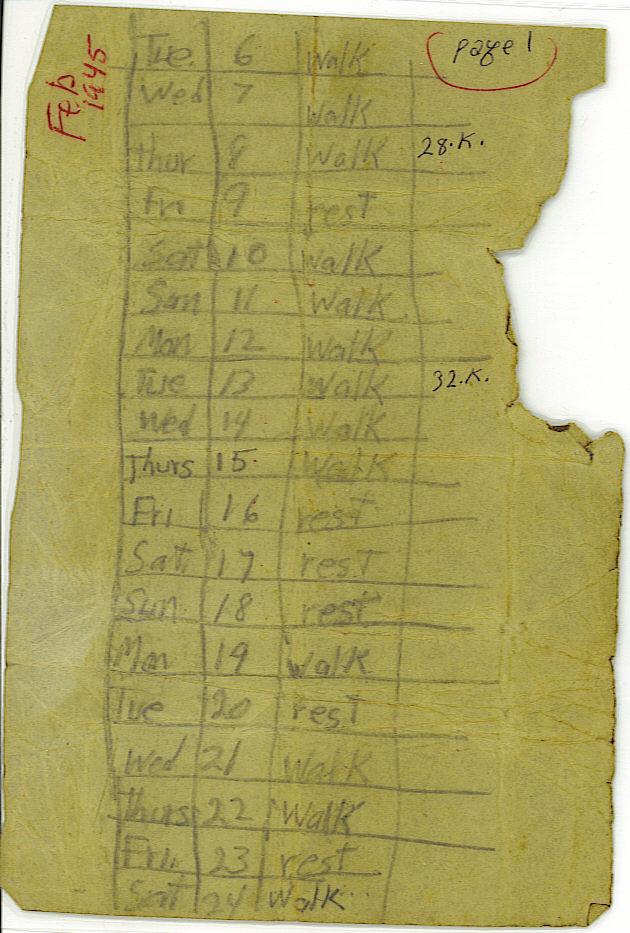 page 1
Feb
1945
Tue. 6 walk
Wed 7 walk
Thur 8 Walk 28.K.
Fri 9 rest
Sat 10 walk
Sun 11 Walk
Mon 12 walk
Tue 13 walk 32.K.
Wed 14 Walk
Thurs 15 Walk
Fri, 16 rest
Sat. 17 rest
Sun 18 rest
Mon 19 Walk
Tue 20 rest
Wed 21 Walk
Thurs 22 Walk
Fri. 23 rest
Sat 24 Walk